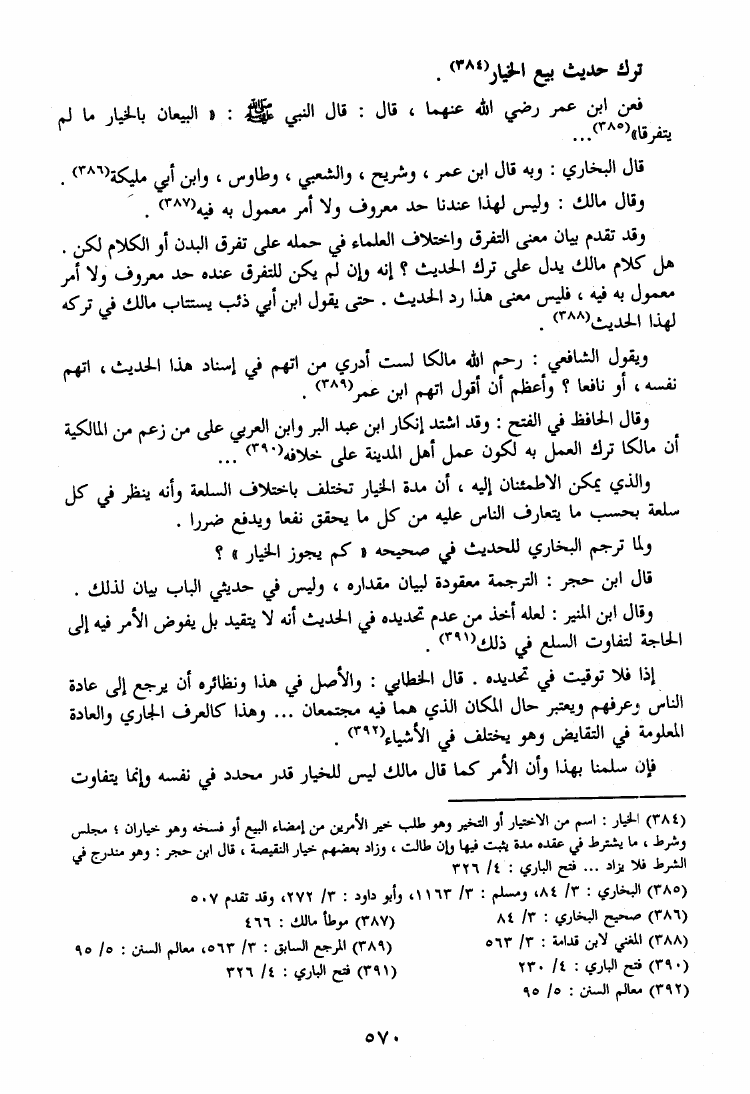 ترك حديث بيع الخيار(٣٨٤) .
فعن ابن عمر رضي الله عنهما ، قال : قال النبي ﷺ : « البيعان بالخيار ما لم
يتفرقا»(٣٨٥)...
قال البخاري : وبه قال ابن عمر ، وشريح ، والشعبي ، وطاوس ، وابن أبي مليكة(٣٨٦) .
وقال مالك : وليس لهذا عندنا حد معروف ولا أمر معمول به فيه(٣٨٧) .
وقد تقدم بيان معنى التفرق واختلاف العلماء في حمله على تفرق البدن أو الكلام لكن .
هل كلام مالك يدل على ترك الحديث ؟ إنه وإن لم يكن للتفرق عنده حد معروف ولا أمر
معمول به فيه ، فليس معنى هذا رد الحديث . حتى يقول ابن أبي ذئب يستتاب مالك في تركه
لهذا الحديث(٣٨٨) .
ويقول الشافعي : رحم الله مالكا لست أدري من اتهم في إسناد هذا الحديث ، اتهم
نفسه ، أو نافعا ؟ وأعظم أن أقول اتهم ابن عمر(٣٨٩) .
وقال الحافظ في الفتح : وقد اشتد إنكار ابن عبد البر وابن العربي على من زعم من المالكية
أن مالكا ترك العمل به لكون عمل أهل المدينة على خلافه(٣٩٠) ...
والذي يمكن الاطمئنان إليه ، أن مدة الخيار تختلف باختلاف السلعة وأنه ينظر في كل
سلعة بحسب ما يتعارف الناس عليه من كل ما يحقق نفعا ويدفع ضررا .
ولما ترجم البخاري للحديث في صحيحه « كم يجوز الخيار » ؟
قال ابن حجر : الترجمة معقودة لبيان مقداره ، وليس في حديثي الباب بيان لذلك .
وقال ابن المنير : لعله أخذ من عدم تحديده في الحديث أنه لا يتقيد بل يفوض الأمر فيه إلى
الحاجة لتفاوت السلع في ذلك(٣٩١) .
إذا فلا توقيت في تحديده . قال الخطابي : والأصل في هذا ونظائره أن يرجع إلى عادة
الناس وعرفهم ويعتبر حال المكان الذي هما فيه مجتمعان ... وهذا كالعرف الجاري والعادة
المعلومة في التقايض وهو يختلف في الأشياء(٣٩٢) .
فإن سلمنا بهذا وأن الأمر كما قال مالك ليس للخيار قدر محدد في نفسه وإنما يتفاوت
(٣٨٤) الخيار : اسم من الاختيار أو التخير وهو طلب خير الأمرين من إمضاء البيع أو فسخه وهو خياران ؛ مجلس
وشرط ، ما يشترط في عقده مدة يثبت فيها وإن طالت ، وزاد بعضهم خيار النقيصة ، قال ابن حجر : وهو مندرج في
الشرط فلا يزاد ... فتح الباري : ٤/ ٣٢٦
(٣٨٥) البخاري : ٣/ ٨٤، ومسلم : ٣/ ١١٦٣، وأبو داود : ٣/ ٢٧٢، وقد تقدم ٥٠٧
(٣٨٦) صحيح البخاري : ٣/ ٨٤ (٣٨٧) موطأ مالك : ٤٦٦
(٣٨٨) المغني لابن قدامة : ٣/ ٥٦٣ (٣٨٩) المرجع السابق : ٣/ ٥٦٣، معالم السنن : ٥/ ٩٥
(٣٩٠) فتح الباري : ٤/ ٢٣٠ (٣٩١) فتح الباري : ٤/ ٣٢٦
(٣٩٢) معالم السنن : ٥/ ٩٥
٥٧٠